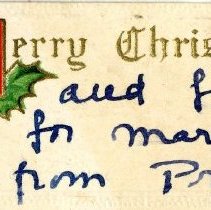 Merry Chris
and f
for mar
from Pr